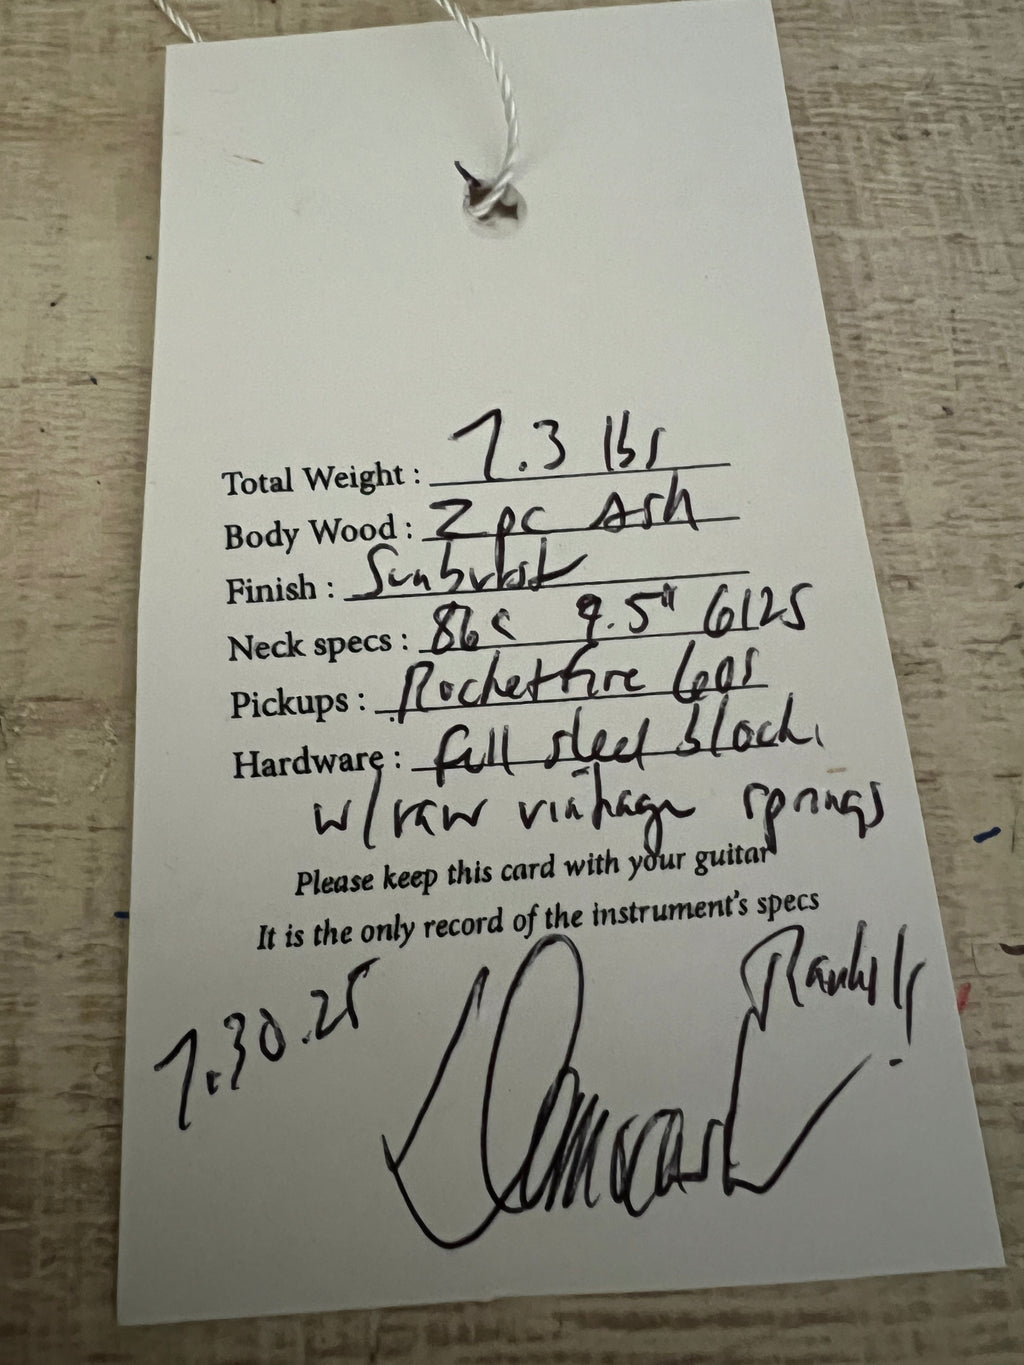 Total Weight : 7.3 lbs
Body Wood : 2 pc Ash
Finish : Sunburst
Neck specs : 86c 9.5" 6125
Pickups : Rocketfire 60s
Hardware : full steel block,
w/raw vintage springs
Please keep this card with your guitar
It is the only record of the instrument's specs
7.30.25